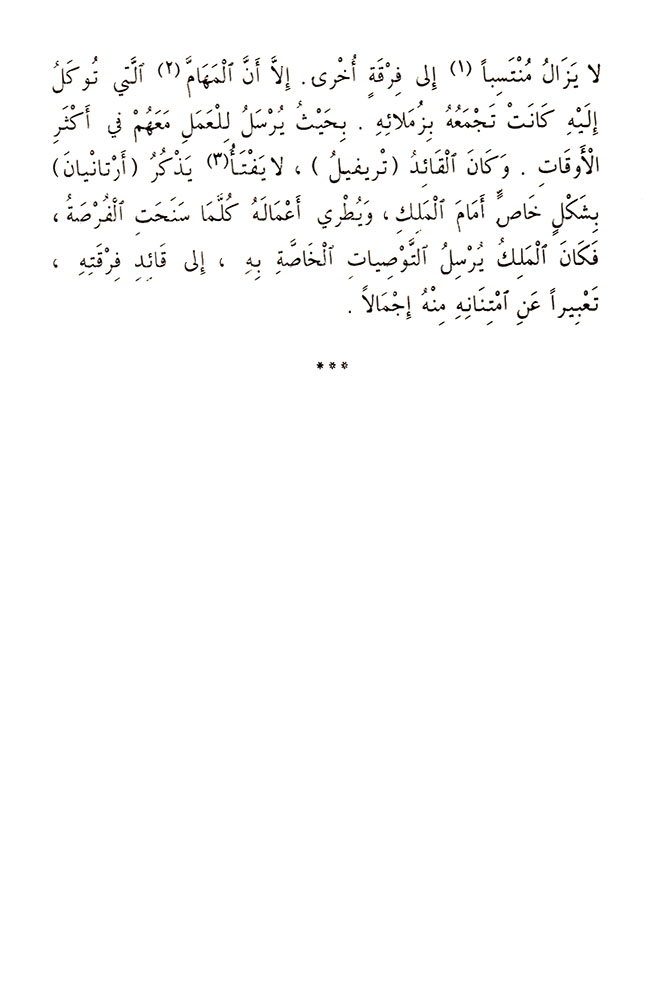 لا يَزَالُ مُنْتَسِباً (١) إلى فِرْقَةٍ أُخْرى. إلاَّ أَنَّ ٱلْمَهَامَّ (٢) ٱلَّتي تُوكَلُ
إلَيْهِ كَانَتْ تَجْمَعُهُ بِزُمَلائِهِ . بِحَيْثُ يُرْسَلُ لِلْعَمَلِ مَعَهُمْ في أَكْثَرِ
الْأَوقَاتِ . وَكَانَ ٱلْقَائِدُ (تْريفيلُ) ، لا يَفْتَأُ(٣) يَذْكُرُ (أَرْتانْيانَ)
بِشَكْلٍ خَاصٍّ أَمَامَ ٱلْمَلِكِ، وَيُطْري أَعْمَالَهُ كُلَّمَا سَنَحَتِ ٱلْفُرْصَةُ ،
فَكَانَ ٱلْمَلِكُ يُرْسِلُ ٱلتَّوْصِياتِ ٱلْخَاصَّةِ بِهِ ، إلى قَائِدِ فِرْقَتِهِ ،
تَعْبِيراً عَنِ ٱمْتِنَانِهِ مِنْهُ إجْمَالاً .
***